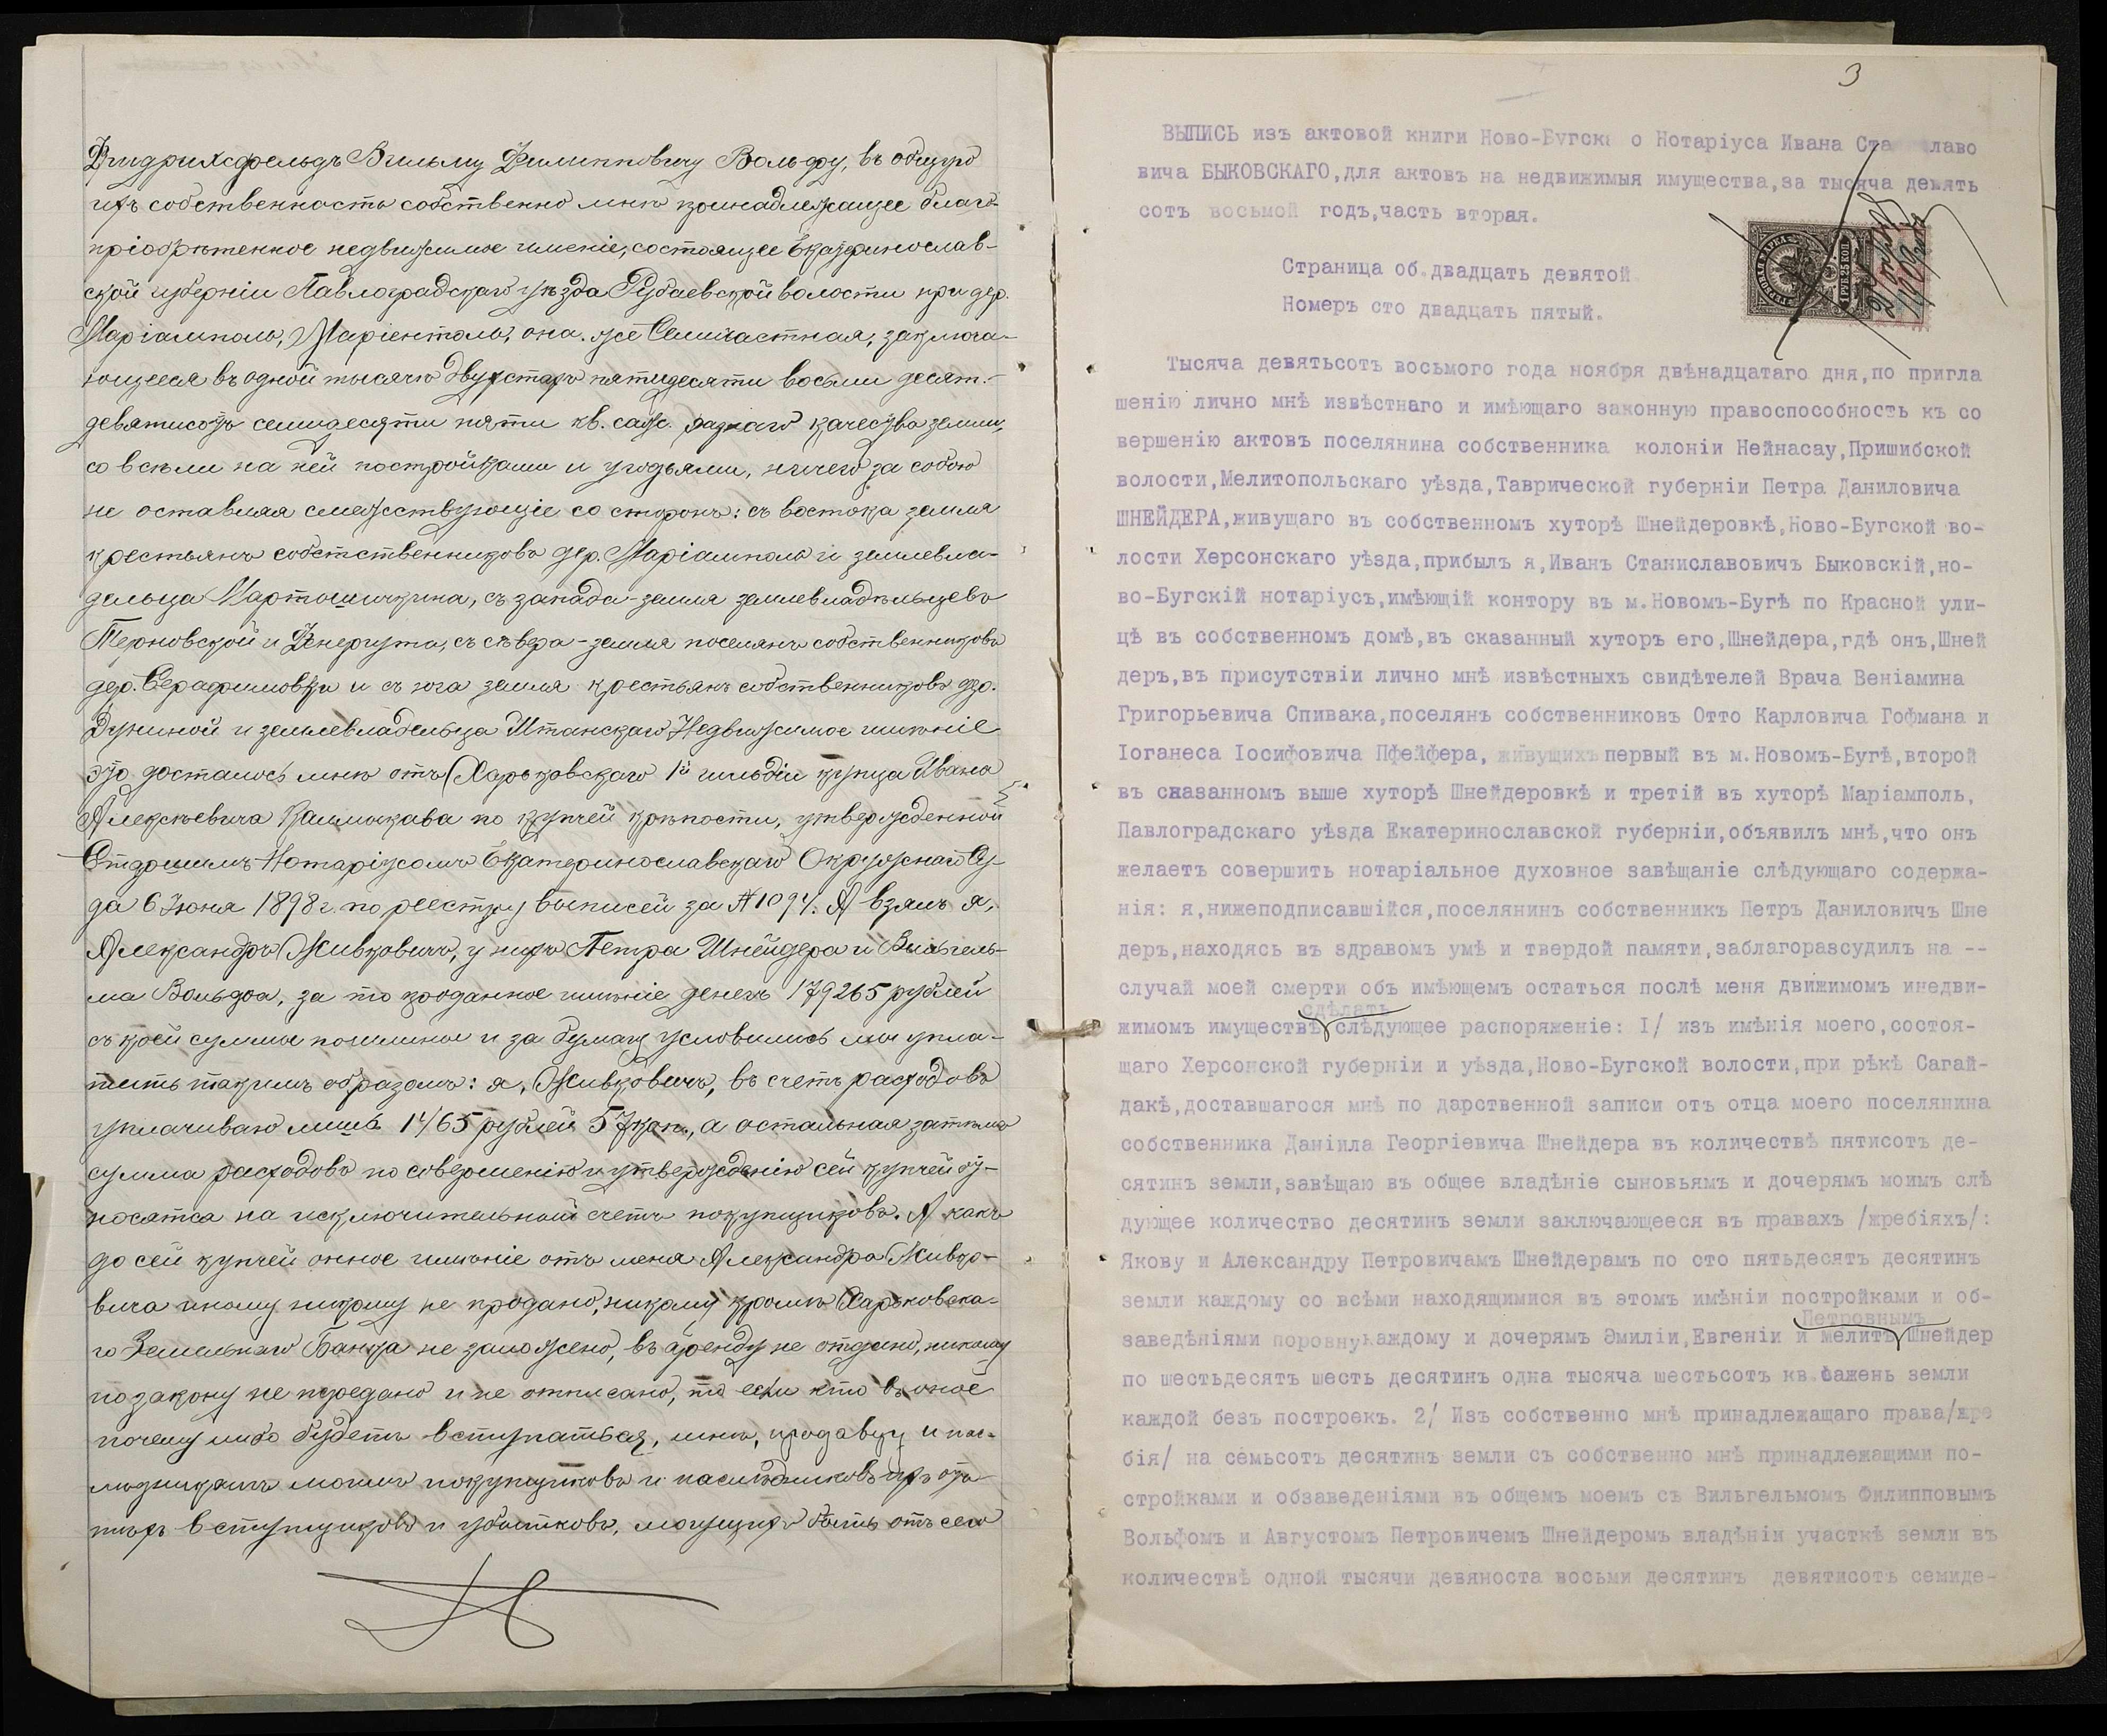 Фридрихсфельдъ Вильму Филипповичу Вольфу, въ общую
ихъ собственность собственно мнѣ принадлежащее благо-
пріобрѣтенное недвижимое имѣніе, состоящее Екатеринослав-
ской губерніи Павлоградскаго уѣзда Рубаевской волости при дер.
Маріамполь, Маріентоль, она-же Семичастная, заключа-
ющееся въ одной тысячѣ двухстахъ пятидесяти восьми десят.
девятисотъ семидесяти пяти кв. саж. разнаго качества земли,
со всѣми на ней постройками и угодьями, ничего за собою
не оставляя смежествующіе со сторонъ: съ востока земля
крестьянъ собственниковъ дер. Маріамполь и землевла-
дельца Мартошичкина, съ запада-земля землевладѣльцевъ
Терновской и, съ сѣвера-земля поселянъ собственниковъ
дер. Серафимовки и съ юга земля крестьянъ собственниковъ дер.
и землевладельца Штанскаго Недвижимое имѣніе
это досталось мнѣ отъ Харьковскаго 1й гильдіи купца Ивана
Алексѣевича по купчей крѣпости, утвержденной
Старшимъ Нотаріусомъ Екатеринославскаго Окружнаго Су-
да 6 Іюня 1898 г. по реестру выписей за № 1094. А взялъ я,
Александръ Живковичъ, у нихъ Петра Шнейдера и Вильгель-
ма Вольфа, за то проданное имѣніе денегъ 179265 рублей
съ коей суммы пошлины и за бумагу условились мы упла-
тить такимъ образомъ: я, Живковичъ, въ счетъ расходовъ
уплачиваю лишь 1465 рублей 57 коп., а остальная затѣмъ
сумма расходовъ по совершенію и утвержденію сей купчей от-
носятся на исключительный счетъ покупщиковъ. А какъ
до сей купчей оное имѣніе отъ меня Александра Живко-
вича иному никому не продано, никому кромѣ Харьковска-
го Земельнаго Банка не заложено, въ аренду не отдано, никому
по закону не передано и не отписано, то если кто въ оное
почему либо будетъ вступаться, мнѣ, продавцу и нас-
лѣдникамъ моимъ покупщиковъ и наслѣдниковъ ихъ отъ
тѣхъ вступщиковъ и убытковъ, могущихъ быть отъ сего
3
ВЫПИСЬ изъ актовой книги Ново-Бугска о Нотаріуса Ивана Ста лаво
вича БЫКОВСКАГО,для актовъ на недвижимыя имущества,за тысяча девять
сотъ восьмой годъ,часть вторая.
Страница об.двадцать девятой
Номеръ сто двадцать пятый.
1 РУБ. 25 КОП.
Тысяча девятьсотъ восьмого года ноября двѣнадцатаго дня,по пригла
шенію лично мнѣ извѣстнаго и имѣющаго законную правоспособность къ со
вершенію актовъ поселянина собственника колоніи Нейнасау,Пришибской
волости,Мелитопольскаго уѣзда,Таврической губерніи Петра Даниловича
ШНЕЙДЕРА,живущаго въ собственномъ хуторѣ Шнейдеровкѣ,Ново-Бугской во-
лости Херсонскаго уѣзда,прибылъ я,Иванъ Станиславовичъ Быковскій,но-
во-Бугскій нотаріусъ,имѣющій контору въ м.Новомъ-Бугѣ по Красной ули-
цѣ въ собственномъ домѣ,въ сказанный хуторъ его,Шнейдера,гдѣ онъ,Шней
деръ,въ присутствіи лично мнѣ извѣстныхъ свидѣтелей Врача Веніамина
Григорьевича Спивака,поселянъ собственниковъ Отто Карловича Гофмана и
Іоганеса Іосифовича Пфейфера, живущихъ первый въ м.Новомъ-Бугѣ,второй
въ сказанномъ выше хуторѣ Шнейдеровкѣ и третій въ хуторѣ Маріамполь,
Павлоградскаго уѣзда Екатеринославской губерніи,объявилъ мнѣ,что онъ
желаетъ совершить нотаріальное духовное завѣщаніе слѣдующаго содержа-
нія: я,нижеподписавшійся,поселянинъ собственникъ Петръ Даниловичъ Шне
деръ,находясь въ здравомъ умѣ и твердой памяти,заблагоразсудилъ на --
случай моей смерти объ имѣющемъ остаться послѣ меня движимомъ инедви-
сдѣлать
жимомъ имуществѣ слѣдующее распоряженіе: I/ изъ имѣнія моего,состоя-
щаго Херсонской губерніи и уѣзда,Ново-Бугской волости,при рѣкѣ Сагай-
дакѣ,доставшагося мнѣ по дарственной записи отъ отца моего поселянина
собственника Даніила Георгіевича Шнейдера въ количествѣ пятисотъ де-
сятинъ земли,завѣщаю въ общее владѣніе сыновьямъ и дочерямъ моимъ слѣ
дующее количество десятинъ земли заключающееся въ правахъ /жребіяхъ/:
Якову и Александру Петровичамъ Шнейдерамъ по сто пятьдесятъ десятинъ
земли каждому со всѣми находящимися въ этомъ имѣніи постройками и об-
Петровнымъ
заведѣніями поровну каждому и дочерямъ Эмиліи,Евгеніи и Мелитѣ Шнейдер
по шестьдесятъ шесть десятинъ одна тысяча шестьсотъ кв.сажень земли
каждой безъ построекъ. 2/ Изъ собственно мнѣ принадлежащаго права/жре
бія/ на семьсотъ десятинъ земли съ собственно мнѣ принадлежащими по-
стройками и обзаведеніями въ общемъ моемъ съ Вильгельмомъ Филипповымъ
Вольфомъ и Августомъ Петровичемъ Шнейдеромъ владѣніи участкѣ земли въ
количествѣ одной тысячи девяноста восьми десятинъ девятисотъ семиде-